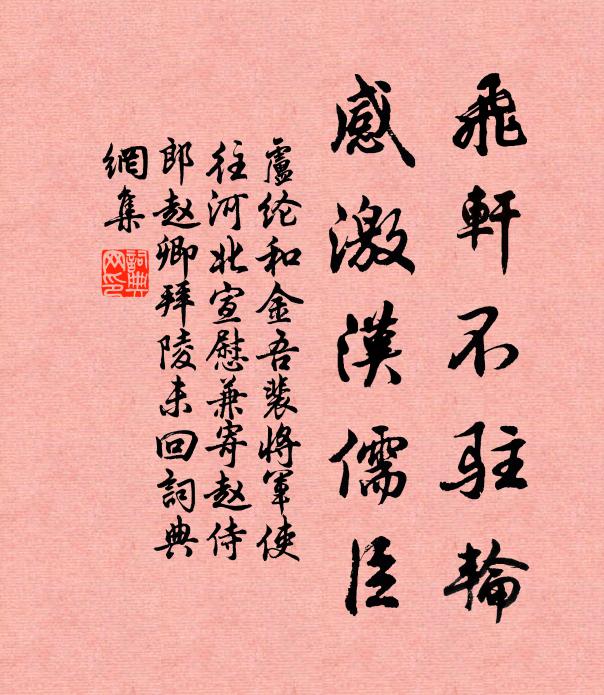 飛軒不駐輪
感激漢儒臣
盧纶和金吾裴将軍使
往河北宣慰兼寄赵侍
郎赵卿拜陵未回詞典
網集
詞典
网印